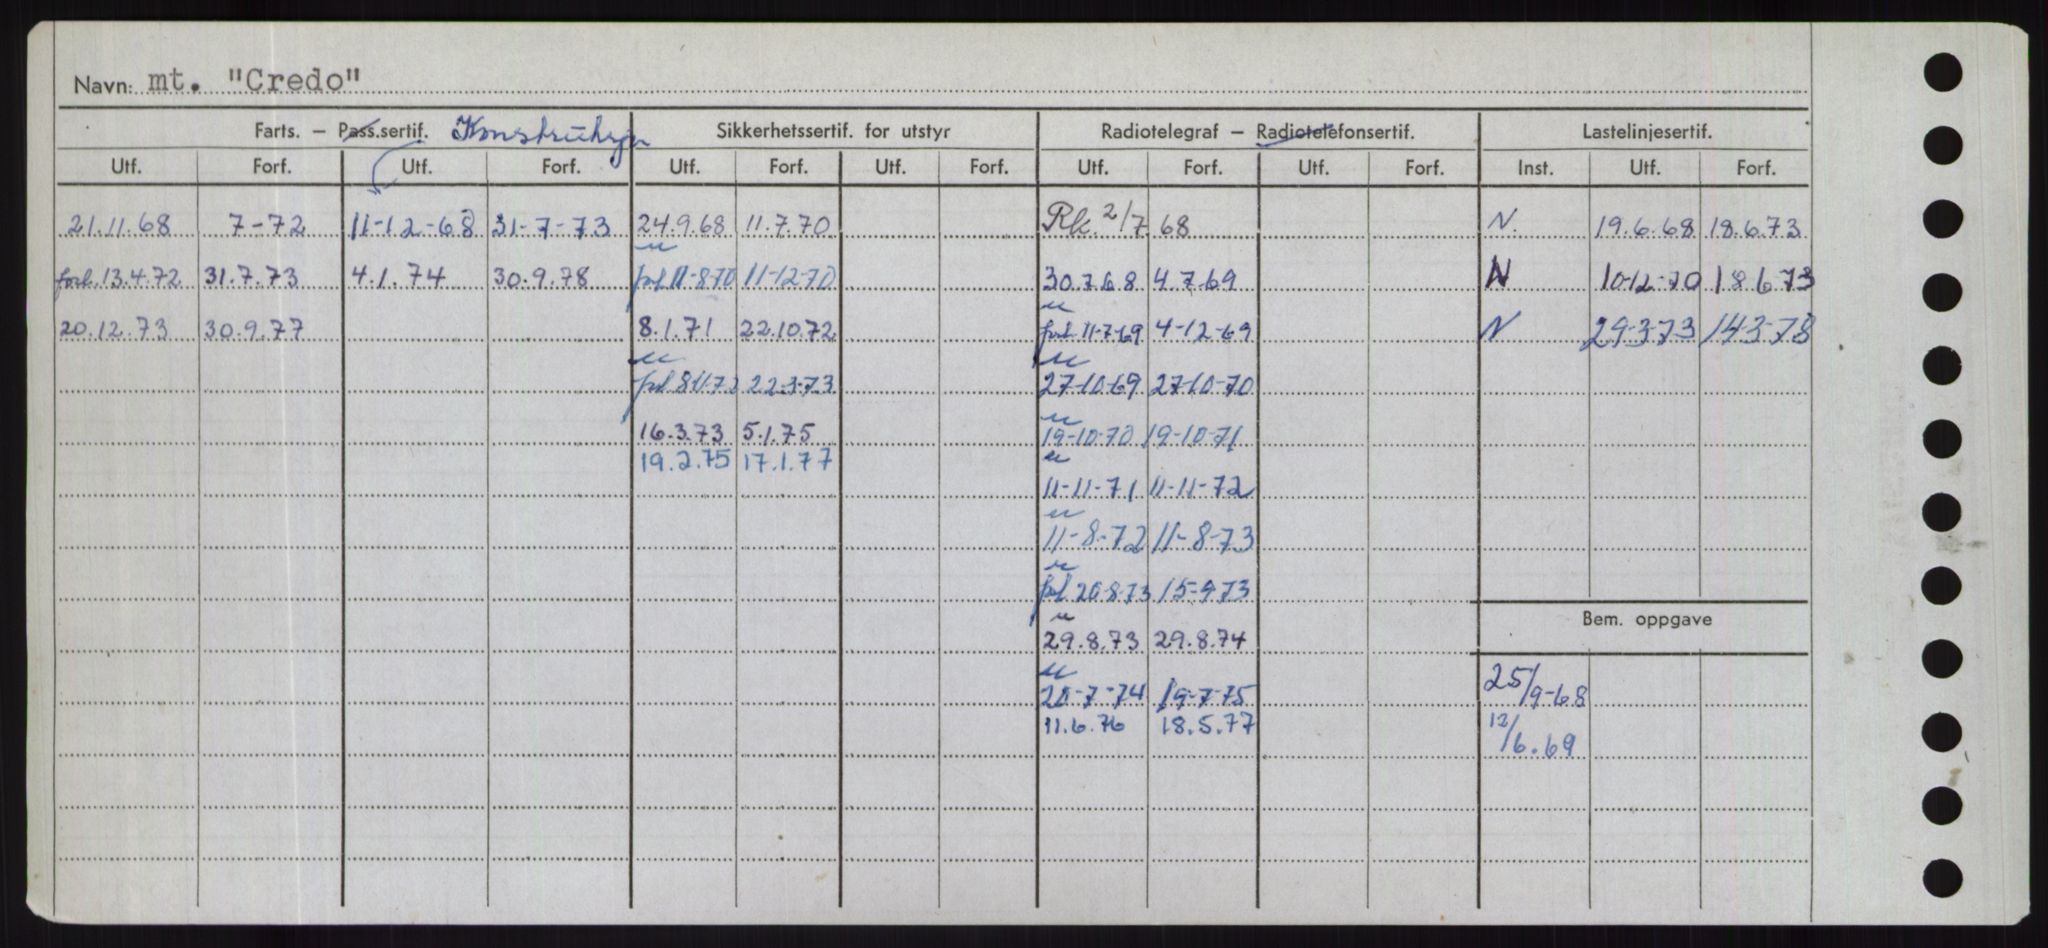 Navn: mt. "Credo"
Farts. – Pass.sertif. Konstruksjon Sikkerhetssertif. for utstyr Radiotelegraf – Radiotelefonsertif. Lastelinjesertif.
Utf. Forf. Utf. Forf. Utf. Forf. Utf. Forf. Utf. Forf. Utf. Forf. Inst. Utf. Forf.
21.11.68 7-72 11-12-68 31-7-73 24.9.68 11.7.70 Rk. 2/7 68 N. 19.6.68 18.6.73
forl. 13.4.72 31.7.73 4.1.74 30.9.78 forl 11-8-70 11-12-70 30.7.68 4.7.69 N 10-12-70 18.6.73
20.12.73 30.9.77 8.1.71 22.10.72 forl. 11-7-69 4-12-69 N 29-3-73 14-3-78
forl 8-11-72 22-3-73 27-10-69 27-10-70
16.3.73 5.1.75 19-10-70 19-10-71
19.2.75 17.1.77
11-11-71 11-11-72
11-8-72 11-8-73
forl 20-8-73 15-9-73
Bem. oppgave
29.8.73 29.8.74
20-7-74 19-7-75 25/9-68
11.6.76 18.5.77 12/6.69